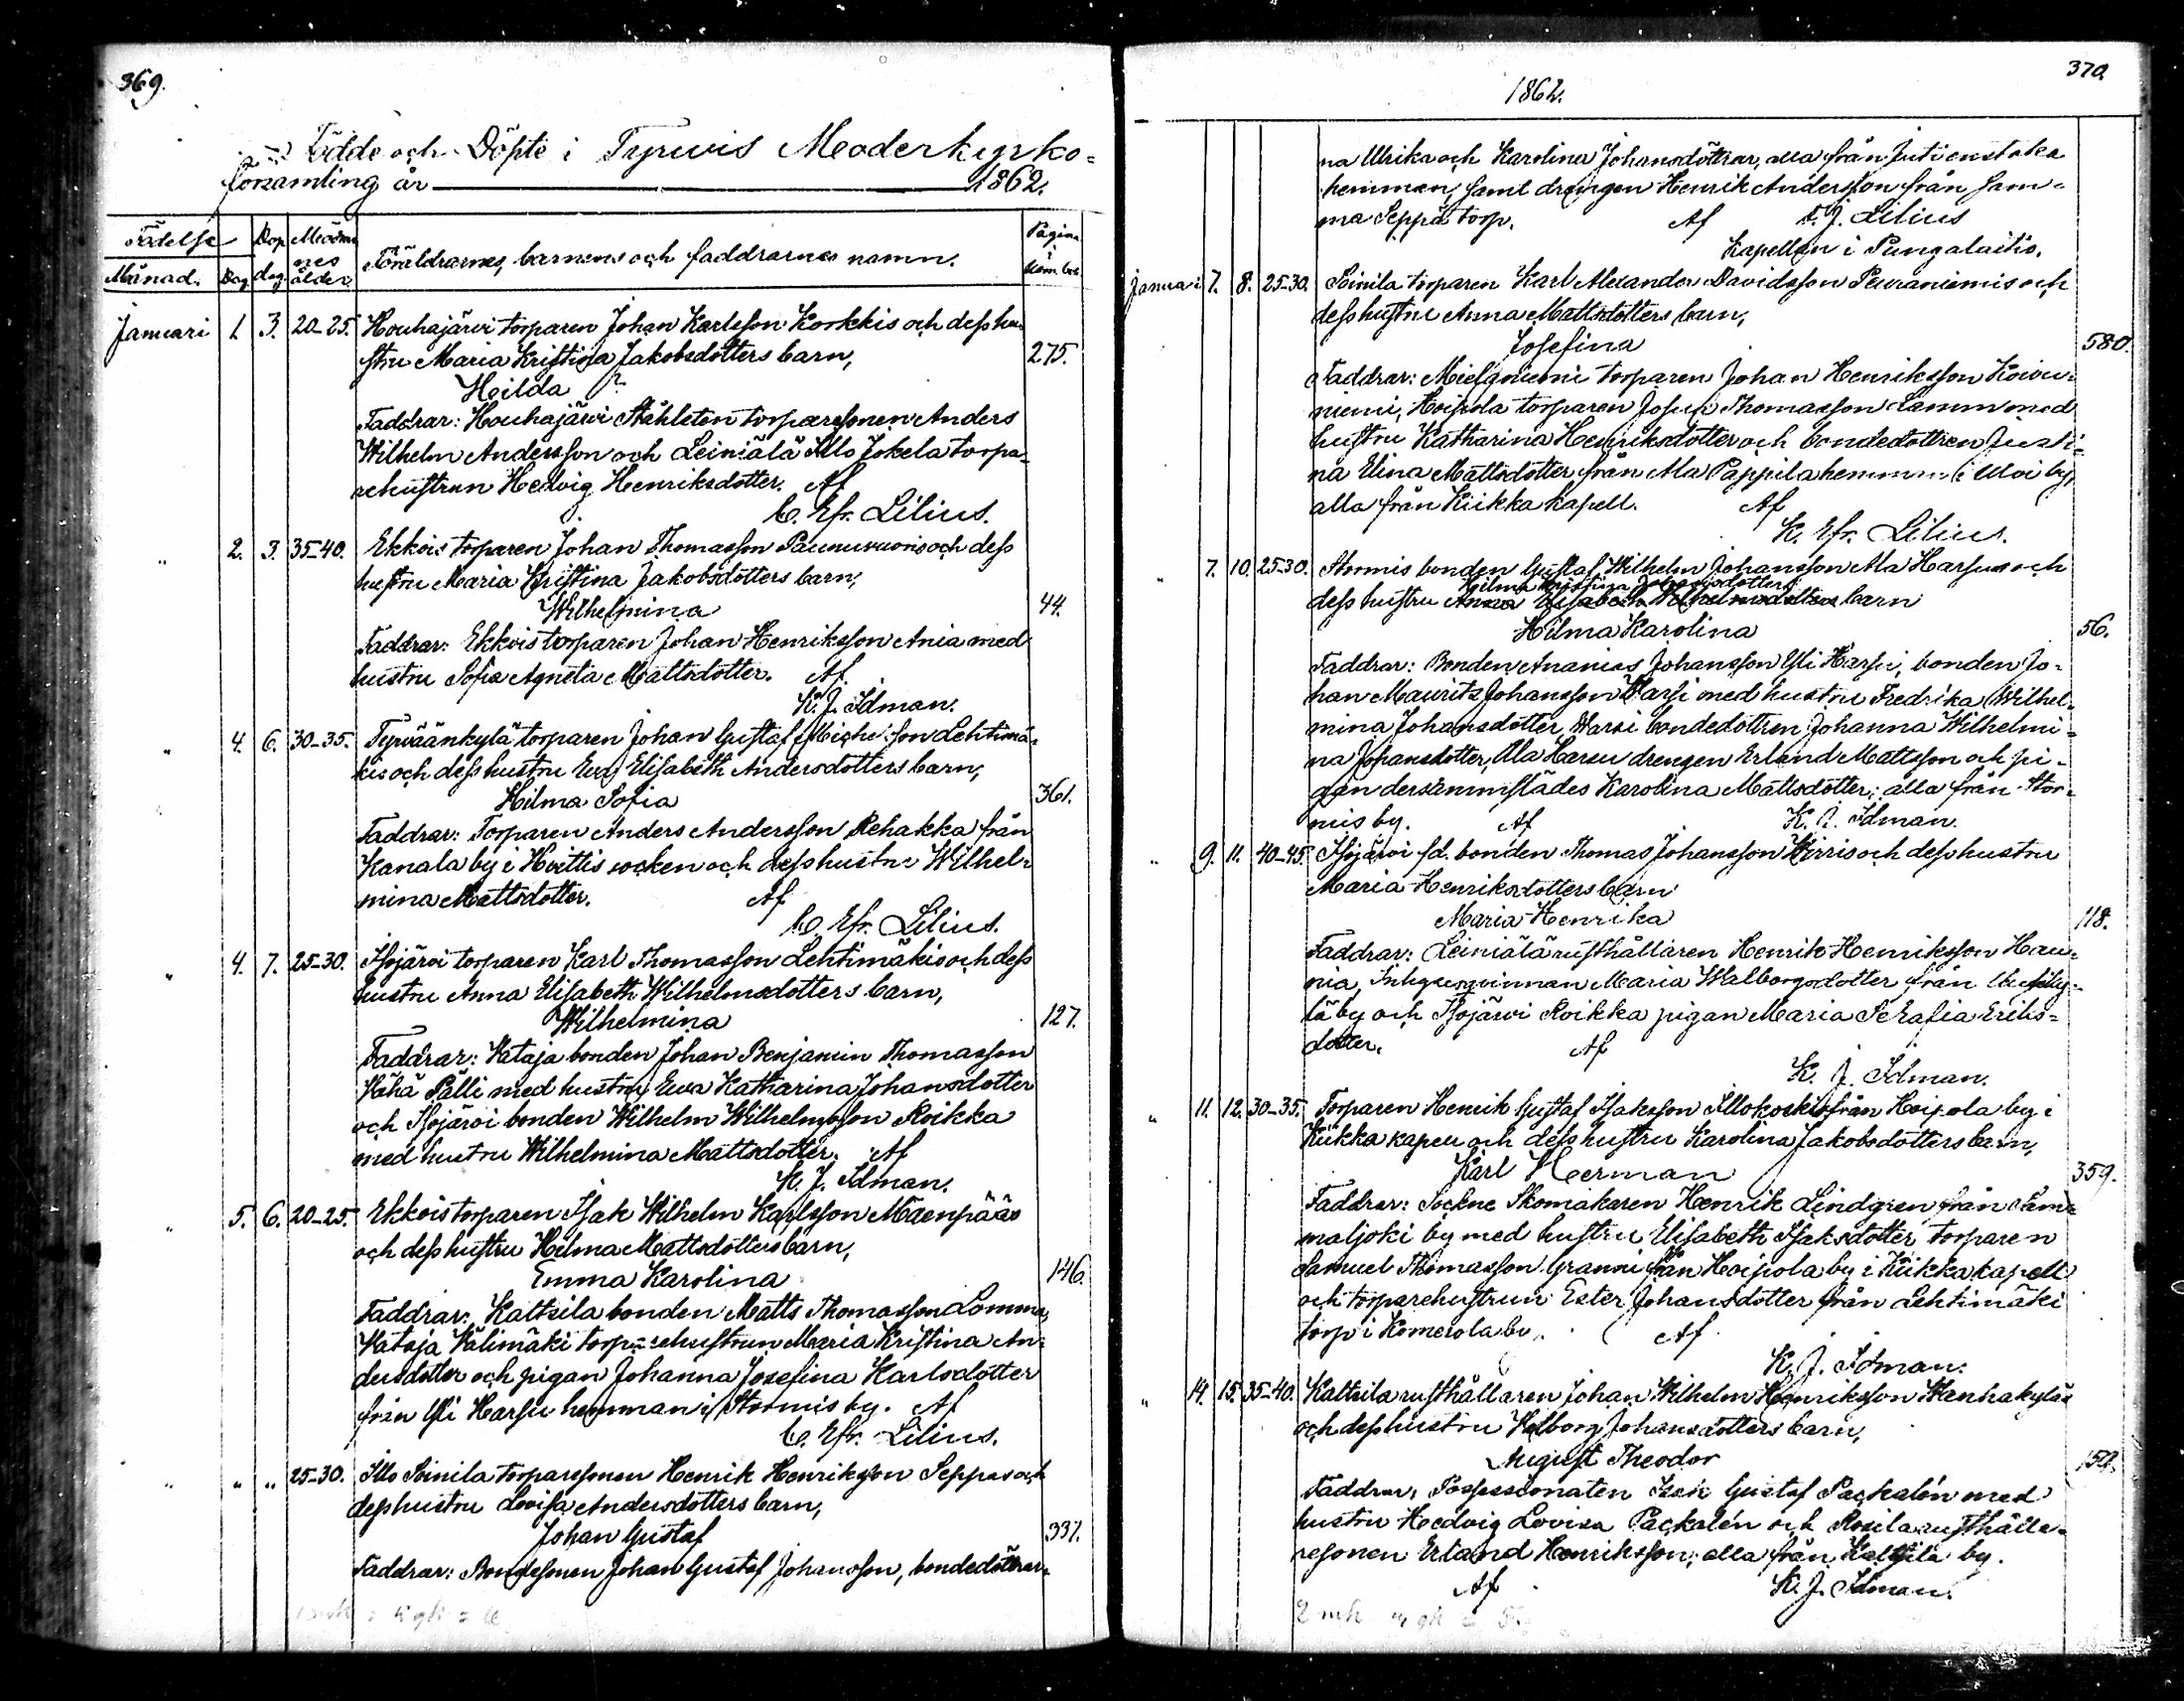 369.
Födde och Döpte i Tyrwis Moderkyrko-
församling år 1862.
Födelse Dop Mödrar
nes Föräldrarnes, barnens och faddrarnes namn. Pagina
Månad. Dag dag. ålder
Januari 1. 3. 20-25. Houhajärwi torparen Johan Karlsson Korkkis och dess hu-
stru Maria Kristina Jakobsdotters barn, 275.
Heilda
Faddrar: Houhajärwi Ståhleton torparesonen Anders
Wilhelm Andersson och Leiniälä Illo Jokela torpa-
rehustrun Hedvig Henriksdotter. Af
C. Efr. Lilius.
" 2. 3. 35-40. Ekkois torparen Johan Thomasson Paunuvuoris och dess
hustru Maria Kristina Jakobsdotters barn,
Wilhelmina 44.
Faddrar: Ekkois torparen Johan Henriksson Ania med
hustru Sofia Agneta Mattsdotter. Af.
K. J. Idman.
" 4. 6. 30-35. Tyrväänkylä torparen Johan Gustaf Michelsson Lehtimä-
kis och dess hustru Eva Elisabeth Andersdotters barn,
Hilma Sofia 361.
Faddrar: Torparen Anders Andersson Rehakka från
Kanala by i Hvittis socken och dess hustru Wilhel-
mina Mattsdotter. Af
C. Efr. Lilius.
" 4. 7. 25-30. Isojärvi torparen Karl Thomasson Lehtimäkis och dess
hustru Anna Elisabeth Wilhelmsdotters barn,
Wilhelmina 127.
Faddrar: Vataja bonden Johan Benjamin Thomasson
Vähä Pälli med hustru Ewa Katharina Johansdotter
och Isojärvi bonden Wilhelm Wilhelmsson Roikka
med hustru Wilhelmina Mattsdotter. Af
K. J. Idman.
" 5. 6. 20-25. Ekkois torparen Isak Wilhelm Karlsson Mäenpääs
och dess hustru Helma Mattsdotters barn,
Emma Karolina 146.
Faddrar: Kaltsila bonden Matts Thomasson Lomma,
Vataja Välimäki torparehustrun Maria Kristina An-
dersdotter och pigan Johanna Josefina Karlsdotter
från Yli Harsu hemman i Stormis by. Af
C. Efr. Lilius.
" " " 25-30. Illo Soinila torparesonen Henrik Henriksson Seppas och
dess hustru Lovisa Andersdotters barn,
Johan Gustaf 337.
Faddrar: Bondesonen Johan Gustaf Johansson, bondedöttrar-
1862. 370.
na Ulrika och Karolina Johansdöttrar, alla från
hemman, samt drengen Henrik Andersson från sam-
ma Seppä torp. Af F. J. Lilius
Kapellan i Pungalaitio.
Januari 7. 8. 25-30. Soinila torparen Karl Alexander Davidsson Peuraniemis och
dess hustru Anna Mattsdotters barn,
Josefina 580.
Faddrar: torparen Johan Henriksson Koivu-
niemi, Hoipola torparen Josua Thomasson Lamm med
hustru Katharina Henriksdotter och bondedottren Justi-
na Elina Mattsdotter från Ala Pappila hemman i by,
alla från Kiikka kapell. Af
K. Efr. Lilius.
" 7. 10. 25-30. Stormis bonden Gustaf Wilhelm Johansson Ala Harsus och
Hilma Kristina Johansdotters
dess hustru Anna Elisabeth Wilhelmsdotters barn
Hilma Karolina 56.
Faddrar: Bonden Ananias Johansson Yli Harsu, bonden Jo-
han Mauritz Johansson Warsi med hustru Fredrika Wilhel-
mina Johansdotter, Warsi bondedottren Johanna Wilhelmi-
na Johansdotter, Ala Harsu drengen Erland Mattsson och pi-
gan dersammastädes Karolina Mattsdotter; alla från Stor-
mis by. Af K. J. Idman.
" 9. 11. 40-45. Isojärvi fd. bonden Thomas Johansson Wirris och dess hustru
Maria Henriksdotters barn
Maria Henrika 118.
Faddrar: Leiniälä rusthållaren Henrik Henriksson Hau-
nia, Inhysqvinnan Maria Walborgsdotter från
lä by och Isojärvi Roikka pigan Maria Serafia Eriks-
dotter. Af
K. J. Idman.
" 11. 12. 30-35. Torparen Henrik Gustaf Isaksson Illokoskis från Hoipola by i
Kiikka kapell och dess hustru Karolina Jakobsdotters barn,
Karl Herman 359.
Faddrar: Sockne Skomakaren Henrik Lindgren från Sam-
maljoki by med hustru Elisabeth Isaksdotter, torparen
Samuel Thomasson Granni från Hoipola by i Kiikka kapell
och torparehustrun Ester Johansdotter från Lehtimäki
torp i Komerola by. Af
K. J. Idman.
" 14. 15. 35-40. Kaltsila rusthållaren Johan Wilhelm Henriksson Wanhakyläs
och dess hustru Walborg Johansdotters barn,
August Theodor 159.
Faddrar: Possessionaten Isak Gustaf Packalén med
hustru Hedvig Lovisa Packalén och Rosila rusthålla-
resonen Erland Henriksson; alla från Kaltsila by.
Af K. J. Idman.